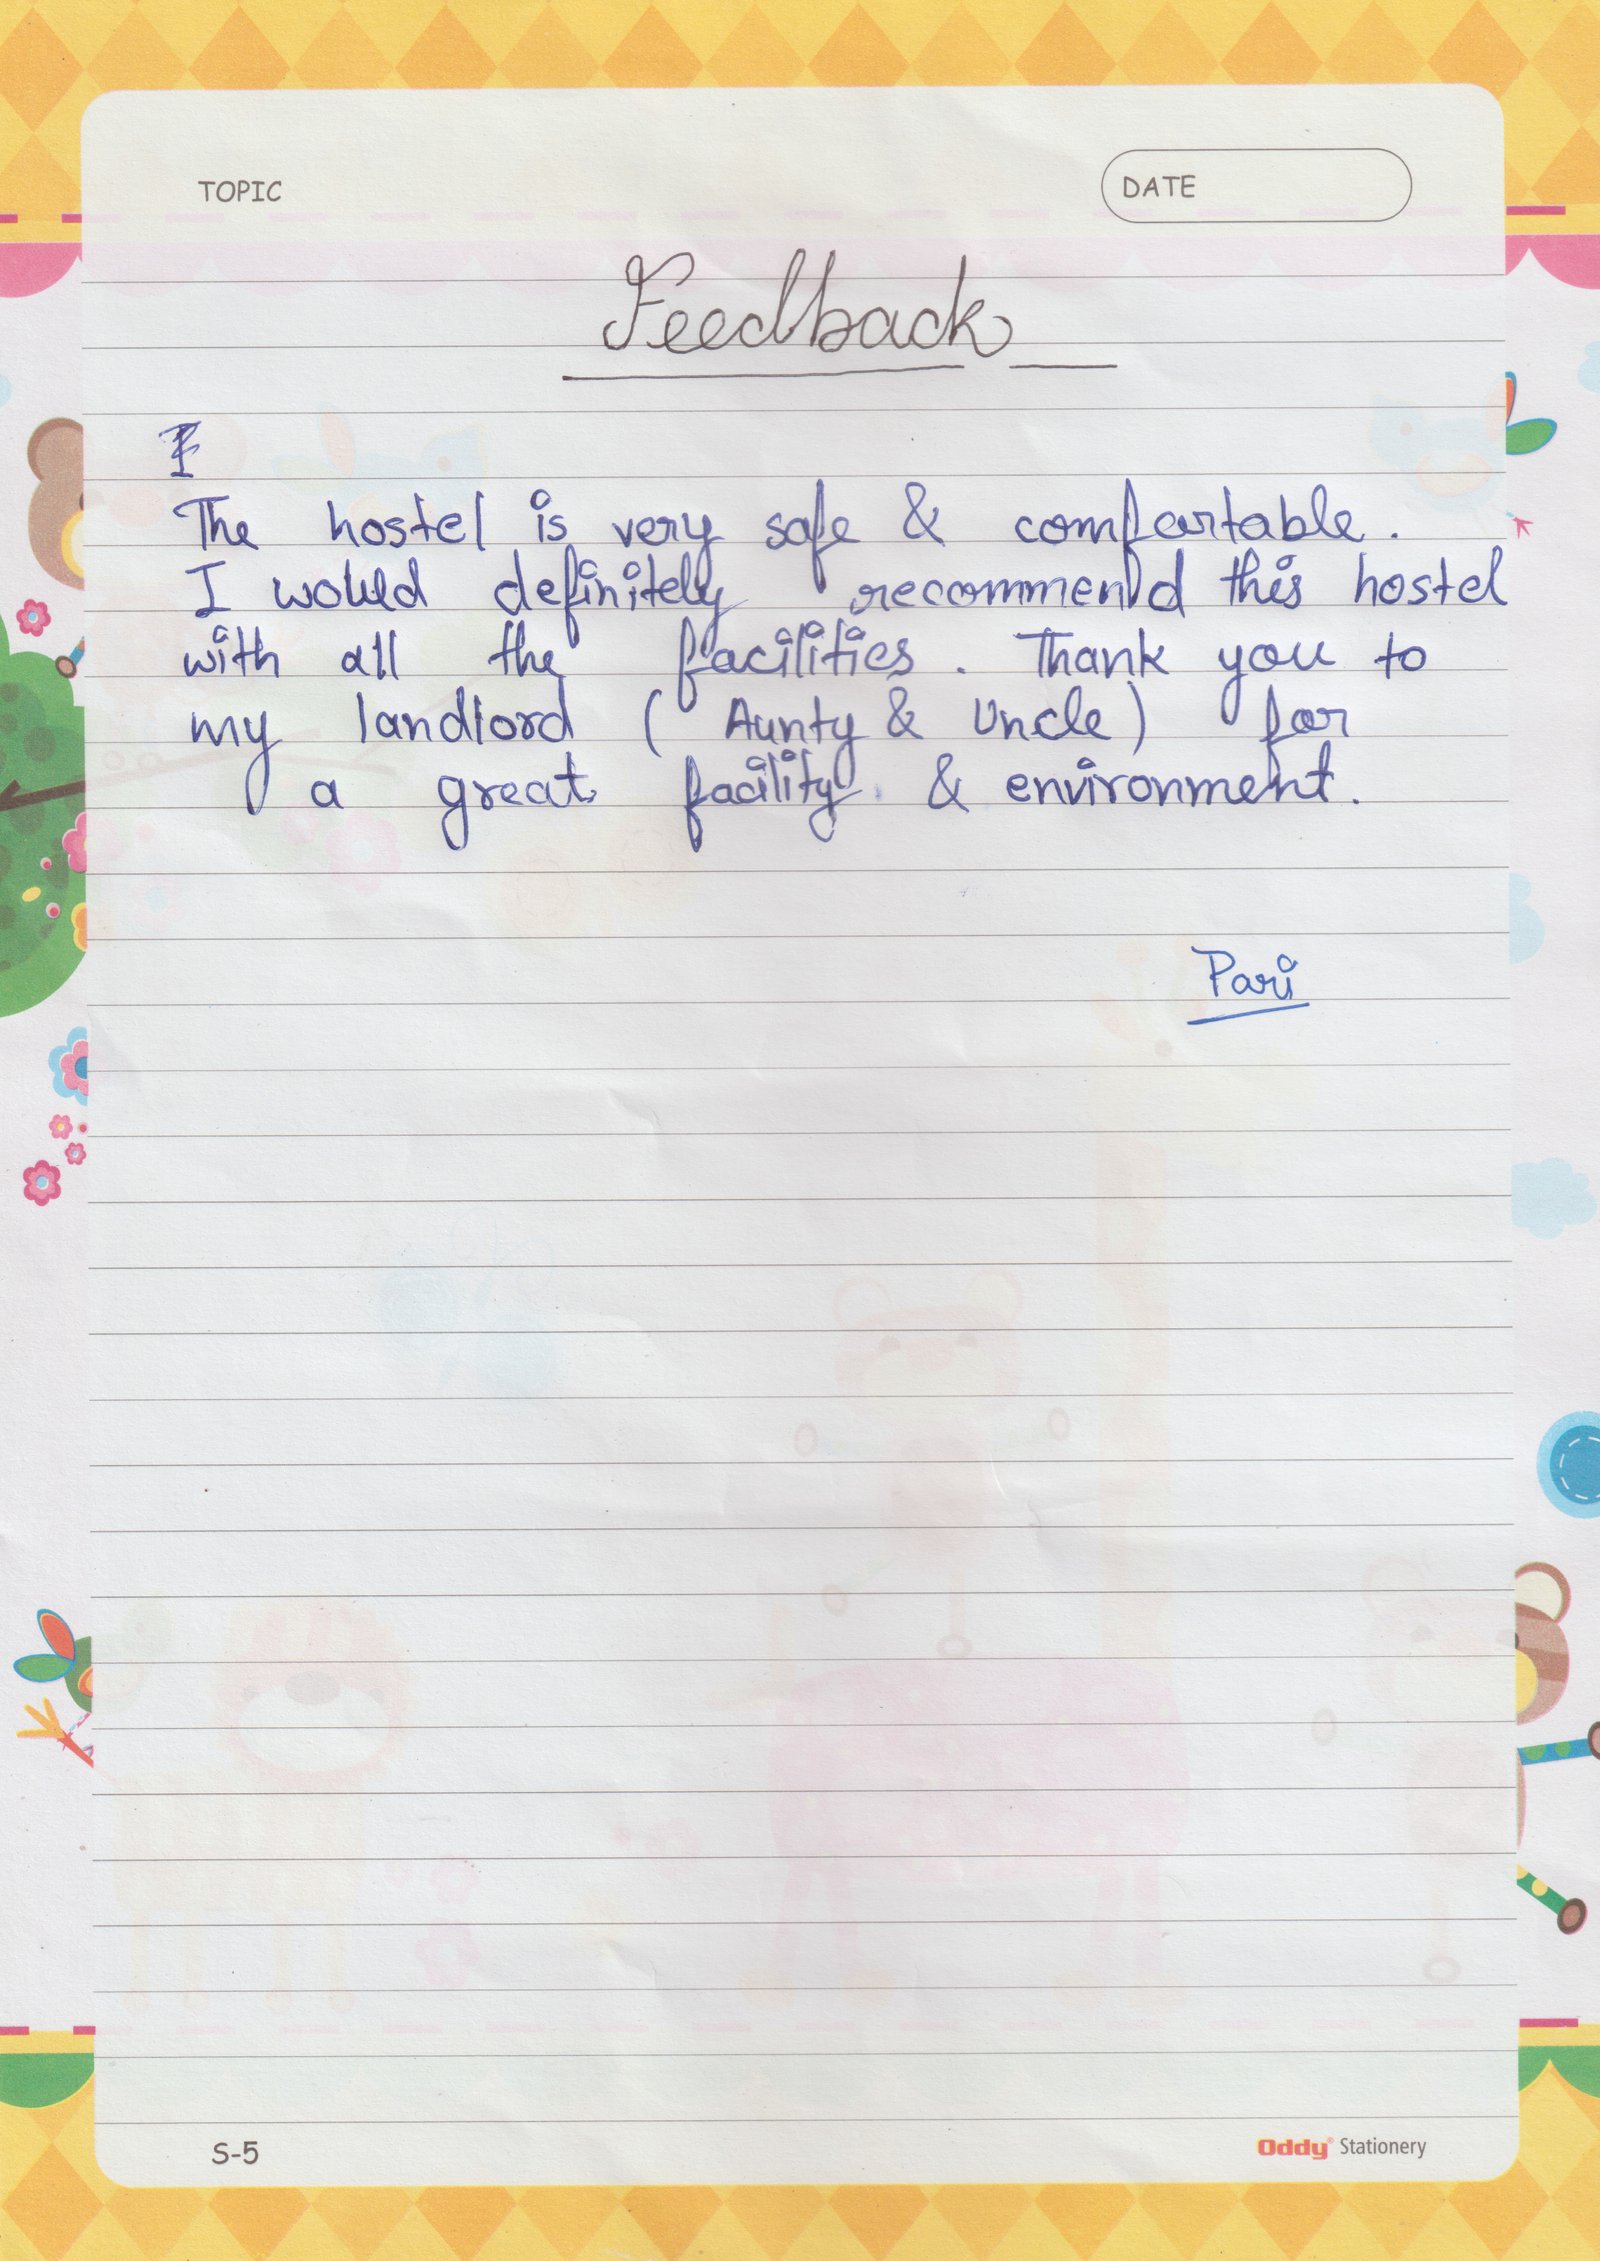 TOPIC
DATE
Feedback
The hostel is very safe & comfortable.
I would definitely recommend this hostel
with all the facilities. Thank you to
my landlord (Aunty & Uncle) for
a great facility & environment.
Pari
S-5
Oddy Stationery